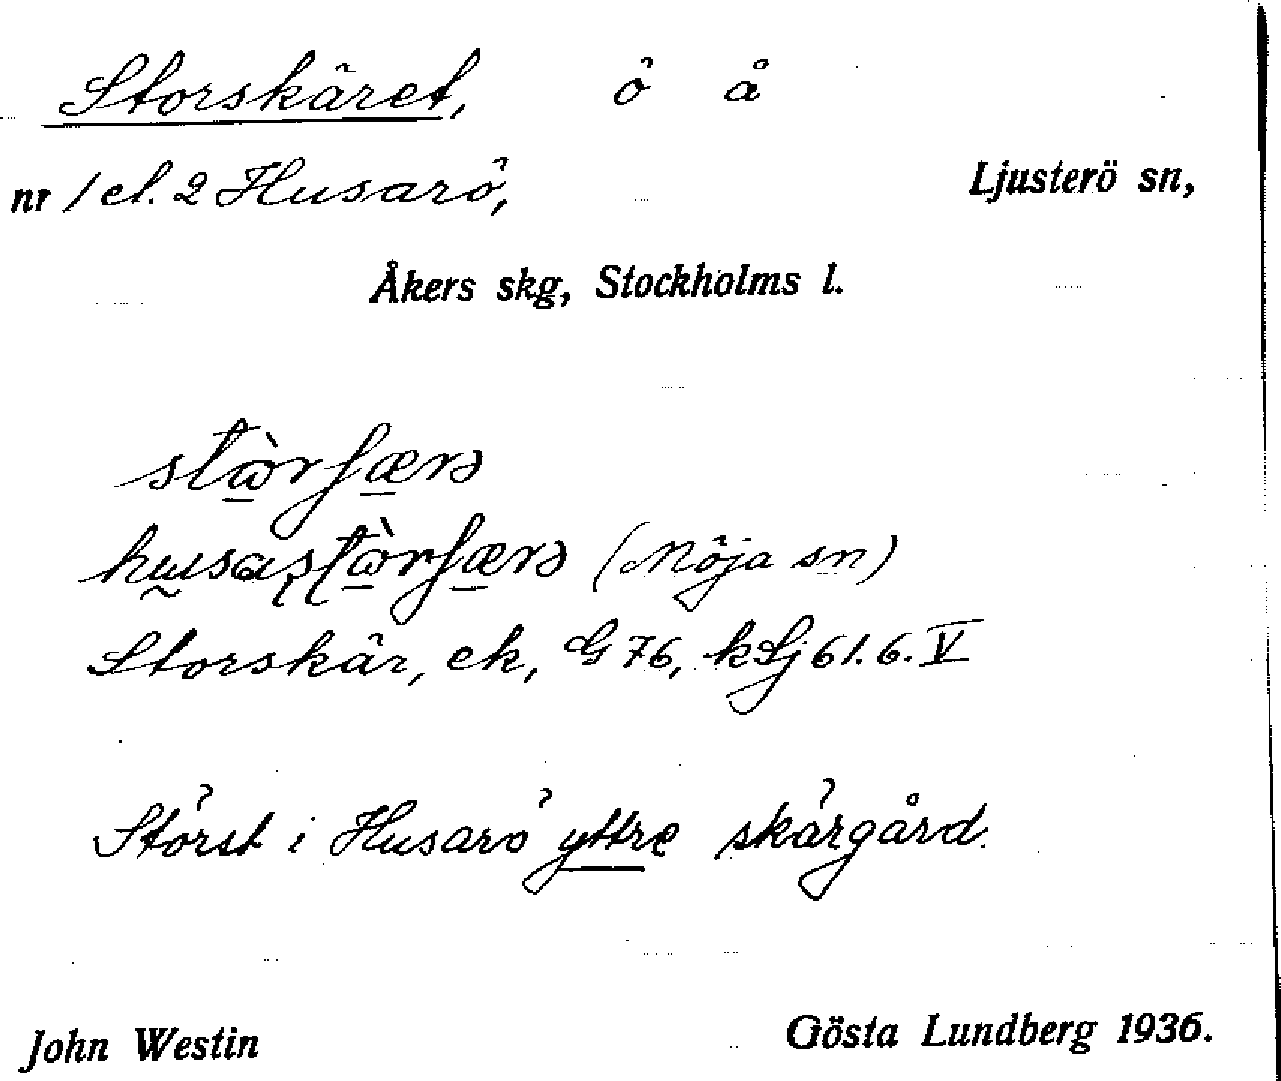 Storskäret, ö å
nr 1 el. 2 Husarö, Ljusterö sn,
Åkers skg, Stockholms l.
(Möja sn)
Storskär, ek, G 76, k Lj 61.6. V
Störst i Husarö yttre skärgård.
John Westin Gösta Lundberg 1936.